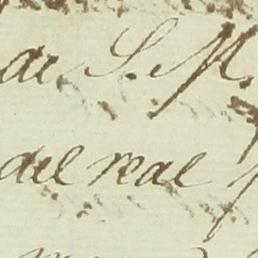 de S. M.
del real